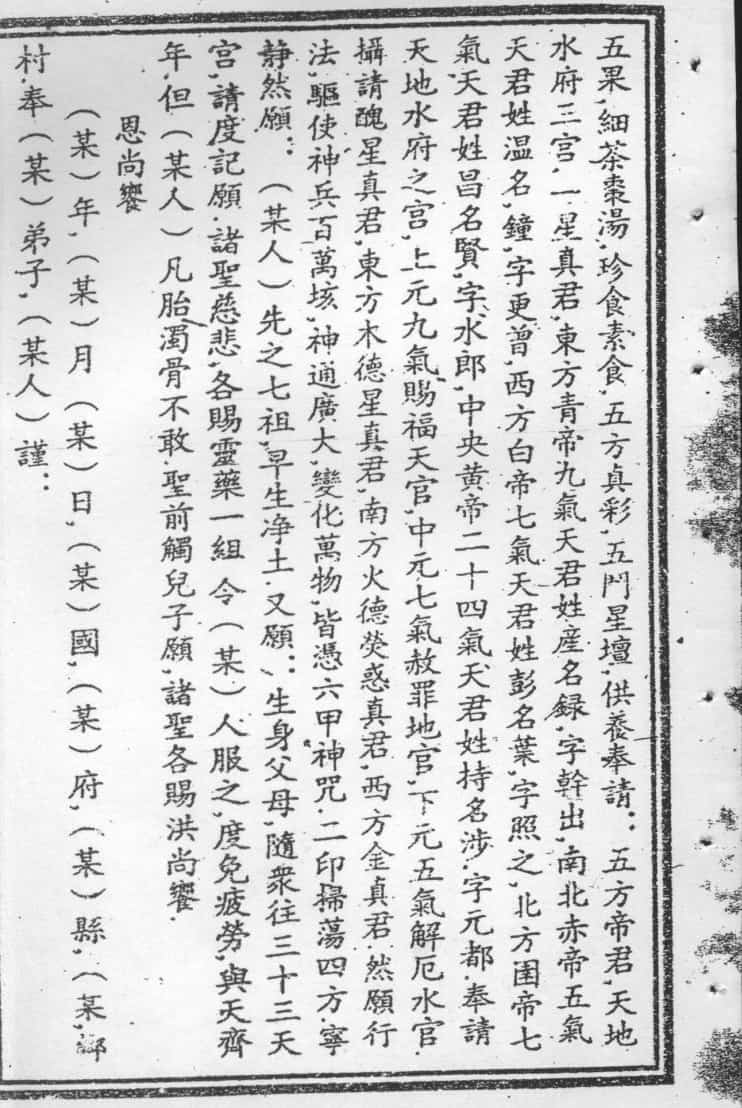 五果,細茶棗湯,珍食素食,五方真彩,五門星壇,供養奉請:五方帝君,天地
水府三宫.一星真君,東方青帝九氣天君姓産名録,字幹出,南北赤帝五氣
天君姓温名,鐘,字更曾,西方白帝七氣天君姓彭名葉,字照之,北方圉帝七
氣天君姓昌名賢,字水郎,中央黄帝二十四氣天君姓持名涉.字元都.奉請
天地水府之宫,上元九氣賜福天官,中元七氣赦罪地官,下元五氣解厄水官.
攝請醜星真君,東方木德星真君,南方火德熒惑真君,西方金真君,然願行
法,驅使神兵百萬垓,神通廣大,變化萬物,皆憑六甲神咒.二印掃蕩四方.寧
静然願:(某人)先之七祖,早生净土.又願:生身父母,隨衆往三十三天
宫,請度記願.諸聖慈悲,各賜靈藥一組 令(某)人服之,度免疲勞,與天齊
年,但(某人)凡胎濁骨不敢.聖前觸兒子願,諸聖各賜洪尚饗.
恩尚饗
(某)年,(某)月(某)日,(某)國,(某)府,(某)縣,(某)鄉
村.奉(某)弟子,(某人)謹: